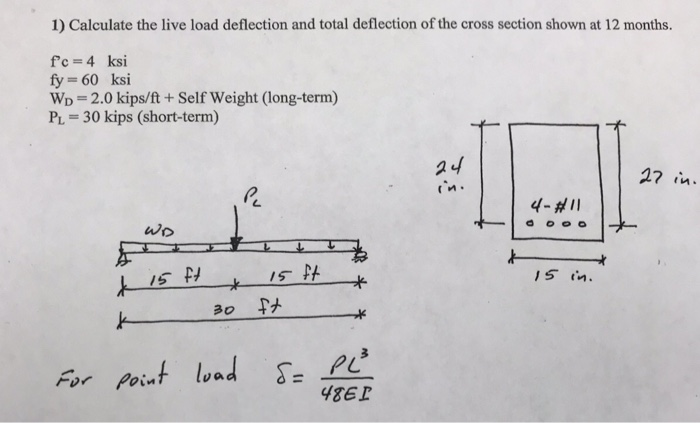 1) Calculate the live load deflection and total deflection of the cross section shown at 12 months.
f'c = 4 ksi
fy = 60 ksi
WD = 2.0 kips/ft + Self Weight (long-term)
PL = 30 kips (short-term)
24
in.
27 in.
4-#11
15 in.
PL
WD
15 ft
15 ft
30 ft
For point load δ = PL³
48EI